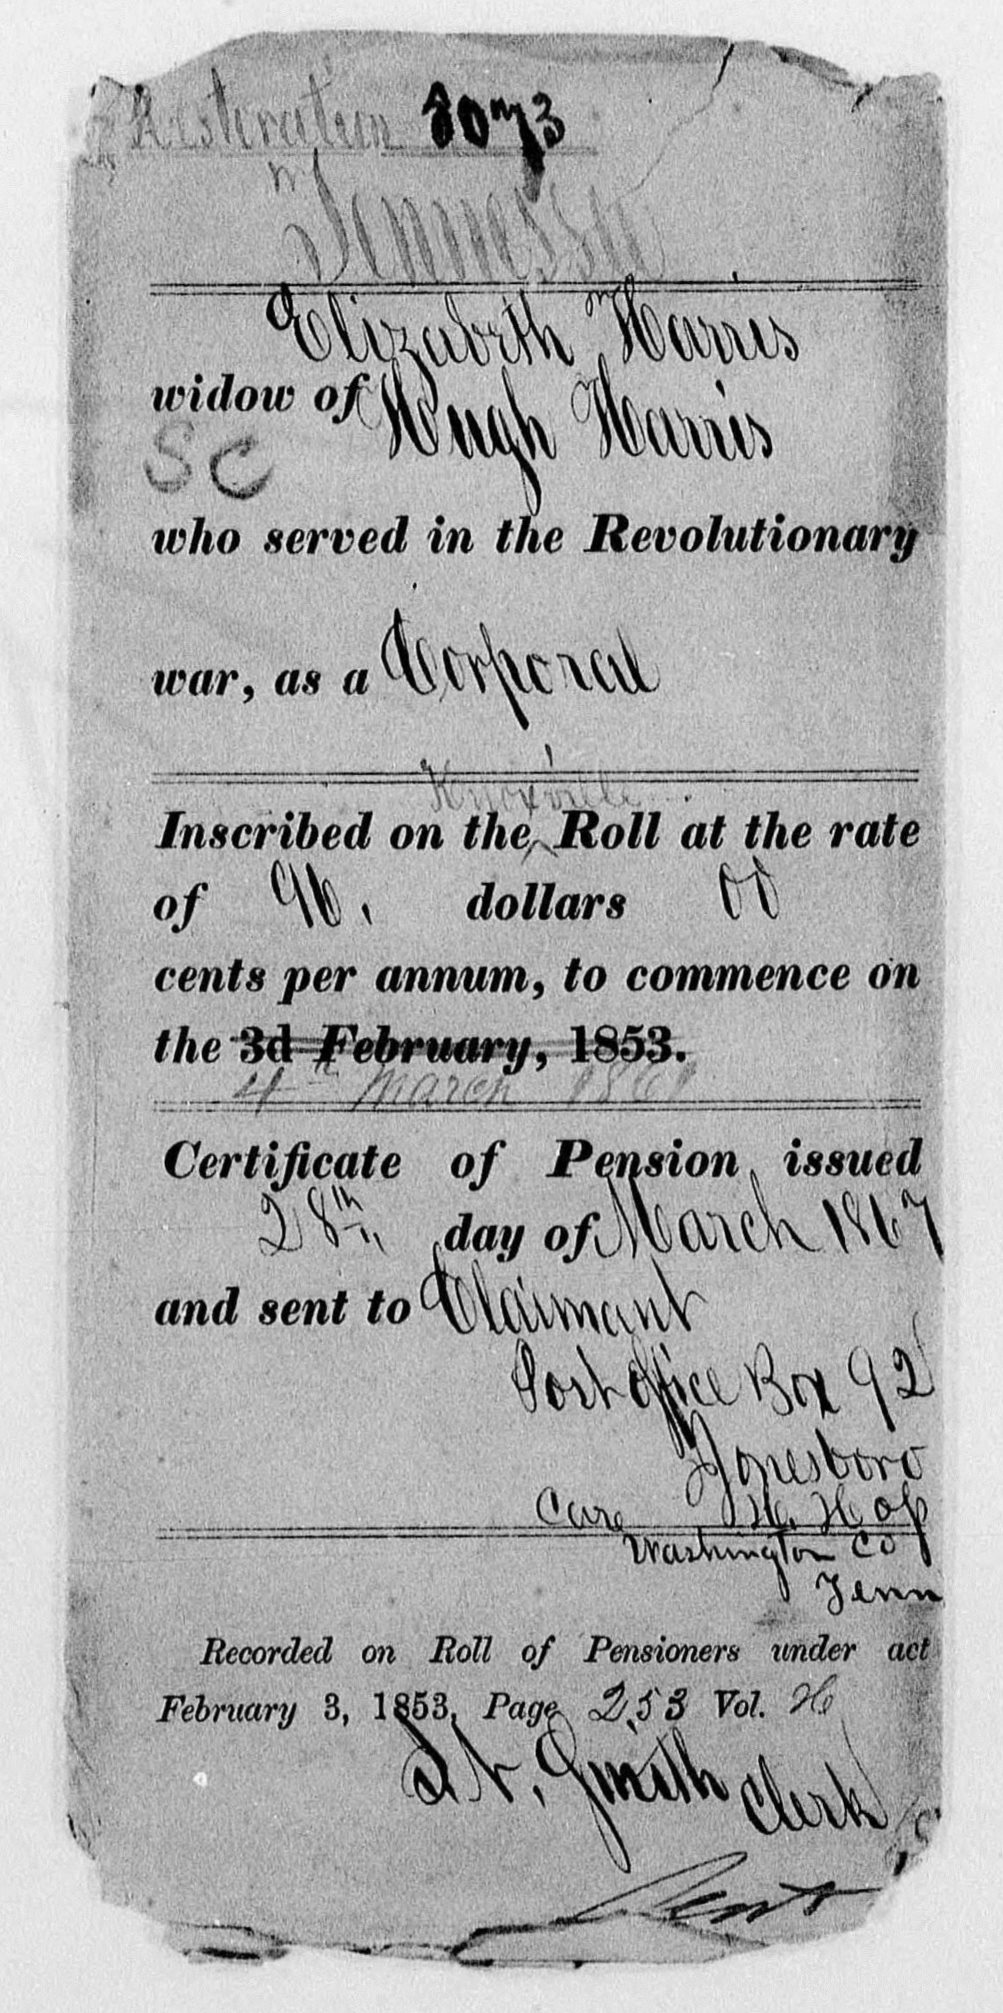 Restoration 8073
Tennessee
Elizabeth Harris
widow of Hugh Harris
SC
who served in the Revolutionary
war, as a Corporal
Knoxville
Inscribed on the ^ Roll at the rate
of 96. dollars 00
cents per annum, to commence on
the 3d February, 1853.
4th March 1861
Certificate of Pension issued
28th day of March 1867
and sent to Claimant
Post office Box 92
Jonesboro
Care H. H
Washington Co
Tenn
Recorded on Roll of Pensioners under act
February 3, 1853, Page 253 Vol. H
Smith Clerk
Sent